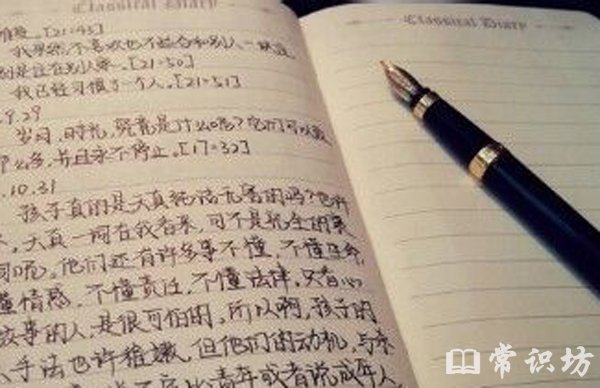 Classical Diary
Classical Diary
难受。[21:45]
我果然不喜欢也不适合和别人一块过
别是住在别人家。[21:50]
我已经习惯了一个人。[21:51]
9.29
岁月、时光,究竟是什么呢?它们可以
那么多,并且永不停止。[17:32]
10.31
孩子真的是天真纯洁无害的吗?也许
天真一词在我看来,可不是褒义的
词呢。他们还有许多事不懂,不懂生命,
懂情感,不懂责任,不懂法律,只有心
故事的人,是很可怕的,所以啊,孩子的
手法也许稚嫩,但他们的动机,与
青年或者说成年人
常识坊